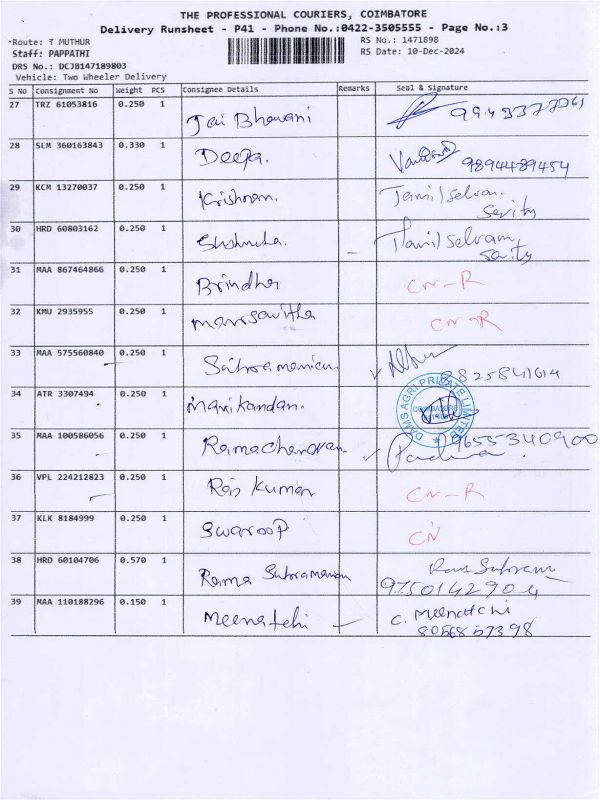 THE PROFESSIONAL COURIERS, COIMBATORE
Delivery Runsheet - P41 - Phone No.:0422-3505555 - Page No.:3
Route: T MUTHUR
RS No.: 1471898
Staff: PAPPATHI
RS Date: 10-Dec-2024
DRS No.: DCJB147189803
Vehicle: Two Wheeler Delivery
S No Consignment No Weight PCS Consignee Details Remarks Seal & Signature
27 TRZ 61053816 0.250 1 Jai Bhavani
28 SLM 360163843 0.330 1 Deepa. 9894489454
29 KCM 13270037 0.250 1 Krishnan. Tamilselvan.
30 HRD 60803162 0.250 1 Tamilselvam
31 MAA 867464866 0.250 1 Brindha CN-R
32 KMU 2935955 0.250 1 CN-R
33 MAA 575560840 0.250 1 Subramanian 8825841614
34 ATR 3307494 0.250 1 Manikandan. DAMS AGRI PRIVATE LIMITED COIMBATORE
35 MAA 100586056 0.250 1 Ramachandran 9655340900
Padma
36 VPL 224212823 0.250 1 Raj Kumar CN-R
37 KLK 8184999 0.250 1 Swaroop CN
38 HRD 60104706 0.570 1 Rama Subramanian
9750142904
39 MAA 110188296 0.150 1 Meenatchi C. Meenatchi
8056857398